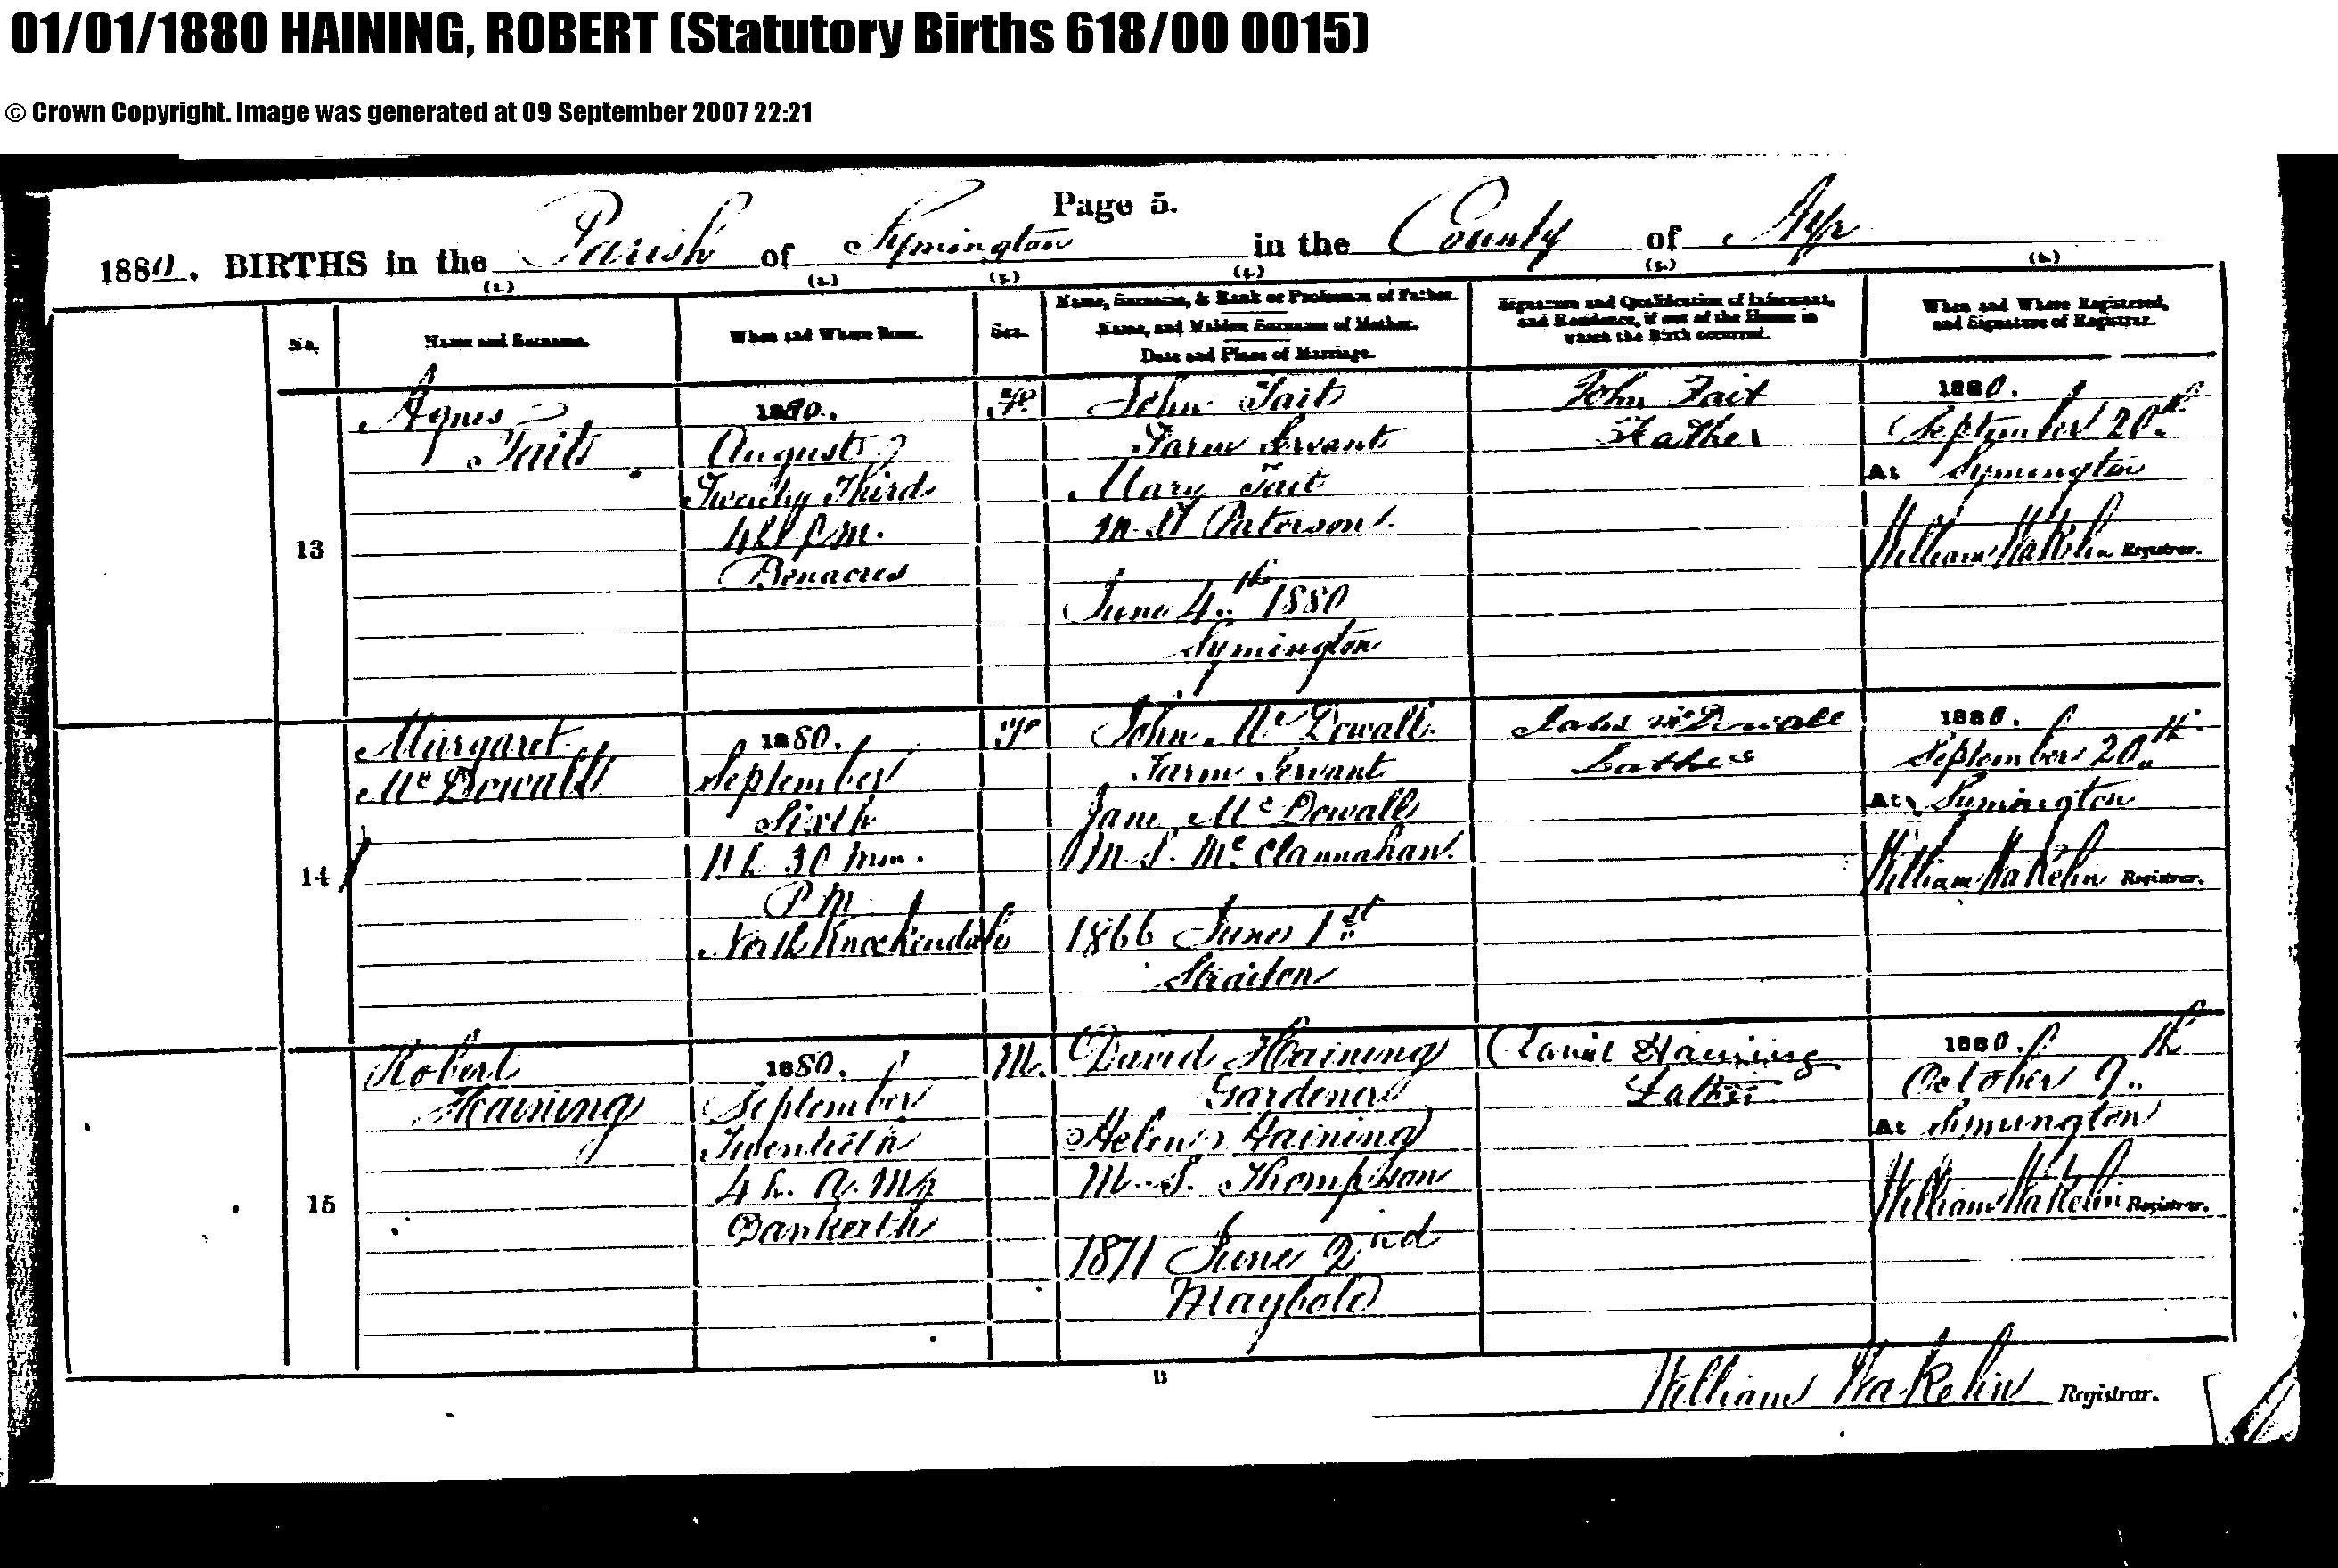 01/01/1880 HAINING, ROBERT (Statutory Births 618/00 0015)
© Crown Copyright. Image was generated at 09 September 2007 22:21
Page 5.
1880. BIRTHS in the Parish of Symington in the County of Ayr
(1.) (2.) (3.) (4.) (5.) (6.)
No.
Name and Surname.
When and Where Born.
Sex.
Name, Surname, & Rank or Profession of Father.
Name, and Maiden Surname of Mother.
Date and Place of Marriage.
Signature and Qualification of Informant,
and Residence, if out of the House in
which the Birth occurred.
When and Where Registered,
and Signature of Registrar.
13
Agnes
Tait
1880.
August
Twenty Third
4h P.M.
F
John Tait
Farm Servant
Mary Tait
M.S. Paterson
June 4th 1880
Symington
John Tait
Father
1880.
September 20th
At Symington
William Wakelin Registrar.
14
Margaret
McDowall
1880.
September
Sixth
11h 30 min.
P.M.
North Knockindale
F
John McDowall
Farm Servant
Jane McDowall
M.S. McClannahan
1866 June 1st
Straiton
John McDowall
Father
1880.
September 20th
At Symington
William Wakelin Registrar.
15
Robert
Haining
1880.
September
Twentieth
4h. A.M.
Dankeith
M.
David Haining
Gardener
Helen Haining
M.S. Thompson
1871 June 2nd
Maybole
David Haining
Father
1880.
October 9th
At Symington
William Wakelin Registrar.
B
William Wakelin Registrar.